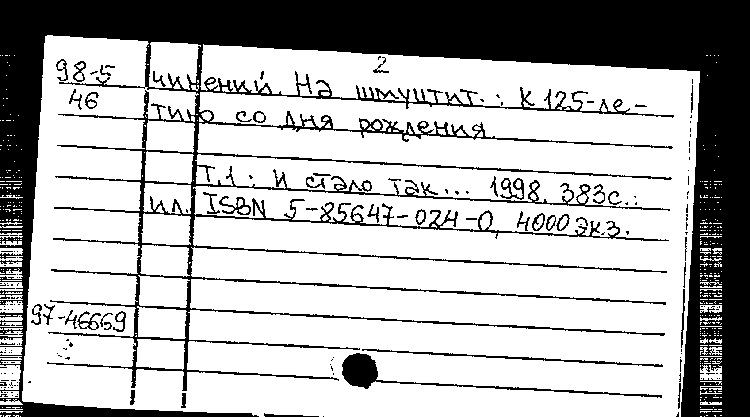 2
98-5 чинений. На шмуцтит.: К 125-ле-
46 тию со дня рождения.
Т.1: И стало так... 1998. 383с.:
ил. ISBN 5-85647-024-0, 4000 экз.
97-46669